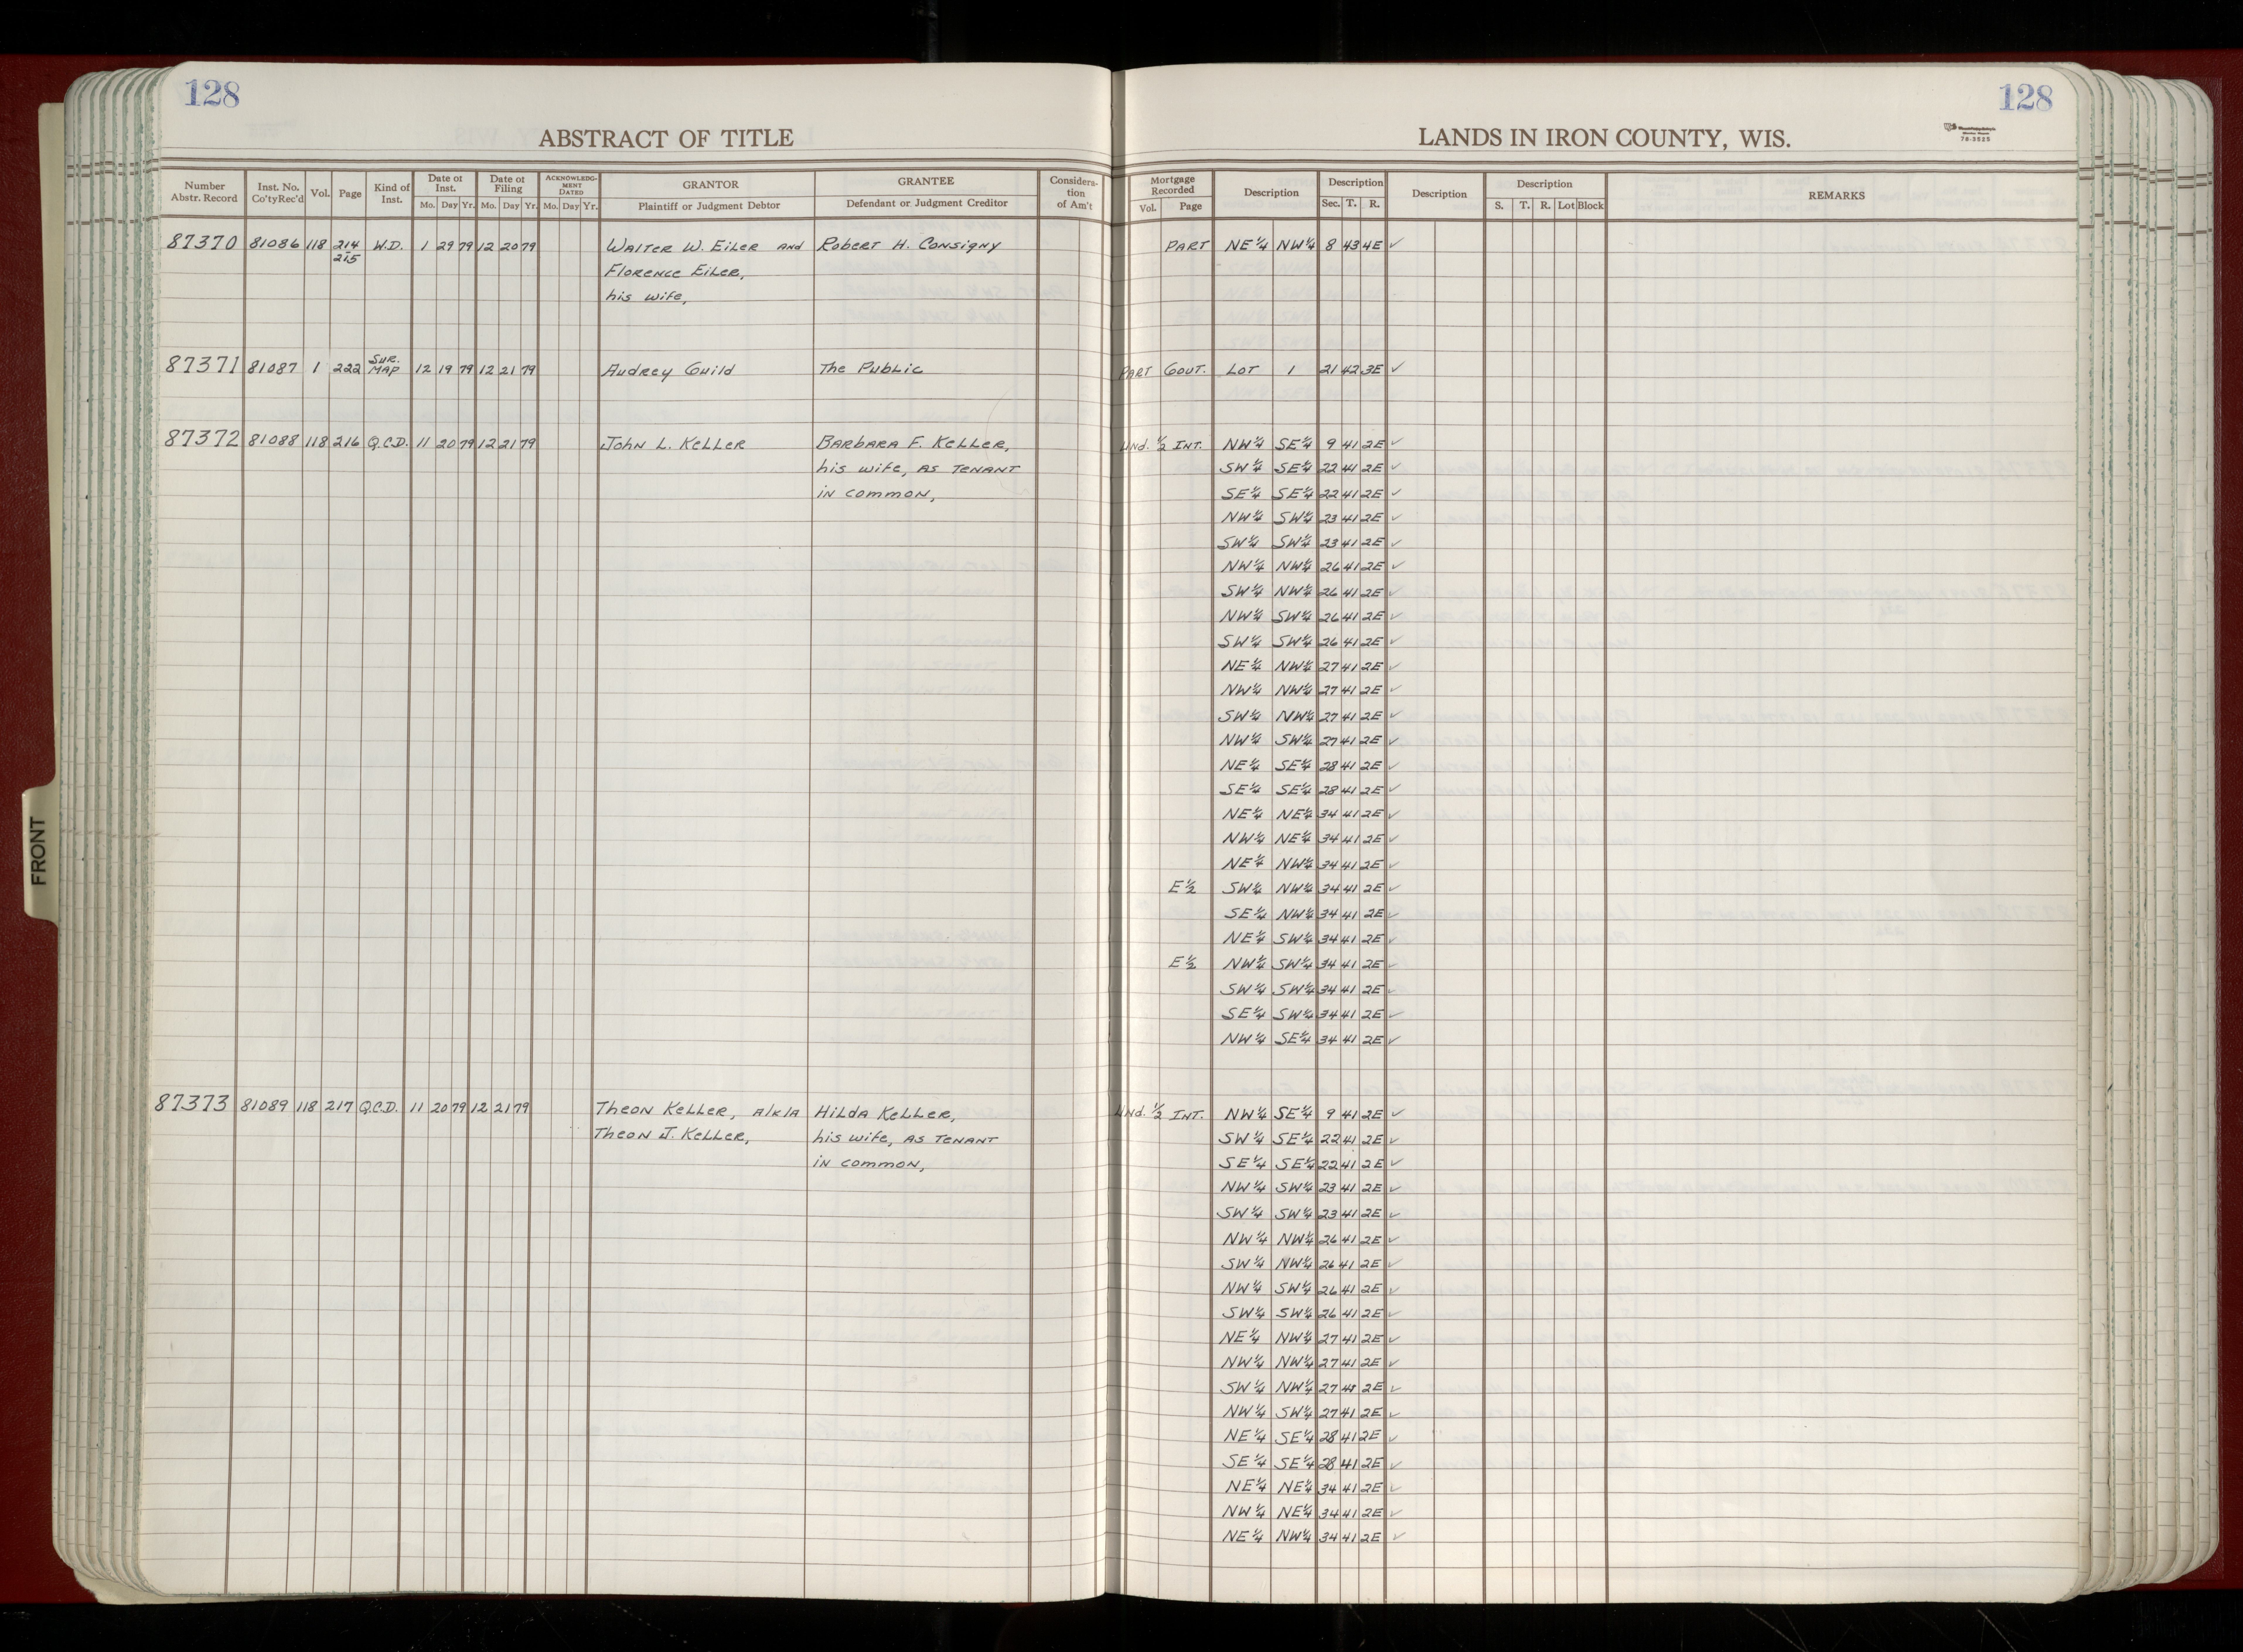 128
128
ABSTRACT OF TITLE
LANDS IN IRON COUNTY, WIS.
78-3525
Number Abstr. Record | Inst. No. Co'ty Rec'd | Vol. | Page | Kind of Inst. | Date of Inst. Mo. Day Yr. | Date of Filing Mo. Day Yr. | ACKNOWLEDGMENT DATED Mo. Day Yr. | GRANTOR Plaintiff or Judgment Debtor | GRANTEE Defendant or Judgment Creditor | Consideration of Am't | Mortgage Recorded Vol. Page | Description | Description Sec. T. R. | Description | Description S. T. R. Lot Block | REMARKS
87370 81086 118 214 W.D. 1 29 79 12 20 79 Walter W. Eiler and Robert H. Consigny PART NE¼ NW¼ 8 43 4E ✓
215
Florence Eiler,
his wife,
87371 81087 1 222 SUR. MAP 12 19 79 12 21 79 Audrey Guild The Public PART GOUT. LOT 1 21 42 3E ✓
87372 81088 118 216 Q.C.D. 11 20 79 12 21 79 John L. Keller Barbara F. Keller, Und. ½ INT. NW¼ SE¼ 9 41 2E ✓
his wife, as tenant SW¼ SE¼ 22 41 2E ✓
in common, SE¼ SE¼ 22 41 2E ✓
NW¼ SW¼ 23 41 2E ✓
SW¼ SW¼ 23 41 2E ✓
NW¼ NW¼ 26 41 2E ✓
SW¼ NW¼ 26 41 2E ✓
NW¼ SW¼ 26 41 2E ✓
SW¼ SW¼ 26 41 2E ✓
NE¼ NW¼ 27 41 2E ✓
NW¼ NW¼ 27 41 2E ✓
SW¼ NW¼ 27 41 2E ✓
NW¼ SW¼ 27 41 2E ✓
NE¼ SE¼ 28 41 2E ✓
SE¼ SE¼ 28 41 2E ✓
NE¼ NE¼ 34 41 2E ✓
NW¼ NE¼ 34 41 2E ✓
NE¼ NW¼ 34 41 2E ✓
E½ SW¼ NW¼ 34 41 2E ✓
SE¼ NW¼ 34 41 2E ✓
NE¼ SW¼ 34 41 2E ✓
E½ NW¼ SW¼ 34 41 2E ✓
SW¼ SW¼ 34 41 2E ✓
SE¼ SW¼ 34 41 2E ✓
NW¼ SE¼ 34 41 2E ✓
87373 81089 118 217 Q.C.D. 11 20 79 12 21 79 Theon Keller, a/k/a Hilda Keller, Und. ½ INT. NW¼ SE¼ 9 41 2E ✓
Theon J. Keller, his wife, as tenant SW¼ SE¼ 22 41 2E ✓
in common, SE¼ SE¼ 22 41 2E ✓
NW¼ SW¼ 23 41 2E ✓
SW¼ SW¼ 23 41 2E ✓
NW¼ NW¼ 26 41 2E ✓
SW¼ NW¼ 26 41 2E ✓
NW¼ SW¼ 26 41 2E ✓
SW¼ SW¼ 26 41 2E ✓
NE¼ NW¼ 27 41 2E ✓
NW¼ NW¼ 27 41 2E ✓
SW¼ NW¼ 27 41 2E ✓
NW¼ SW¼ 27 41 2E ✓
NE¼ SE¼ 28 41 2E ✓
SE¼ SE¼ 28 41 2E ✓
NE¼ NE¼ 34 41 2E ✓
NW¼ NE¼ 34 41 2E ✓
NE¼ NW¼ 34 41 2E ✓
FRONT